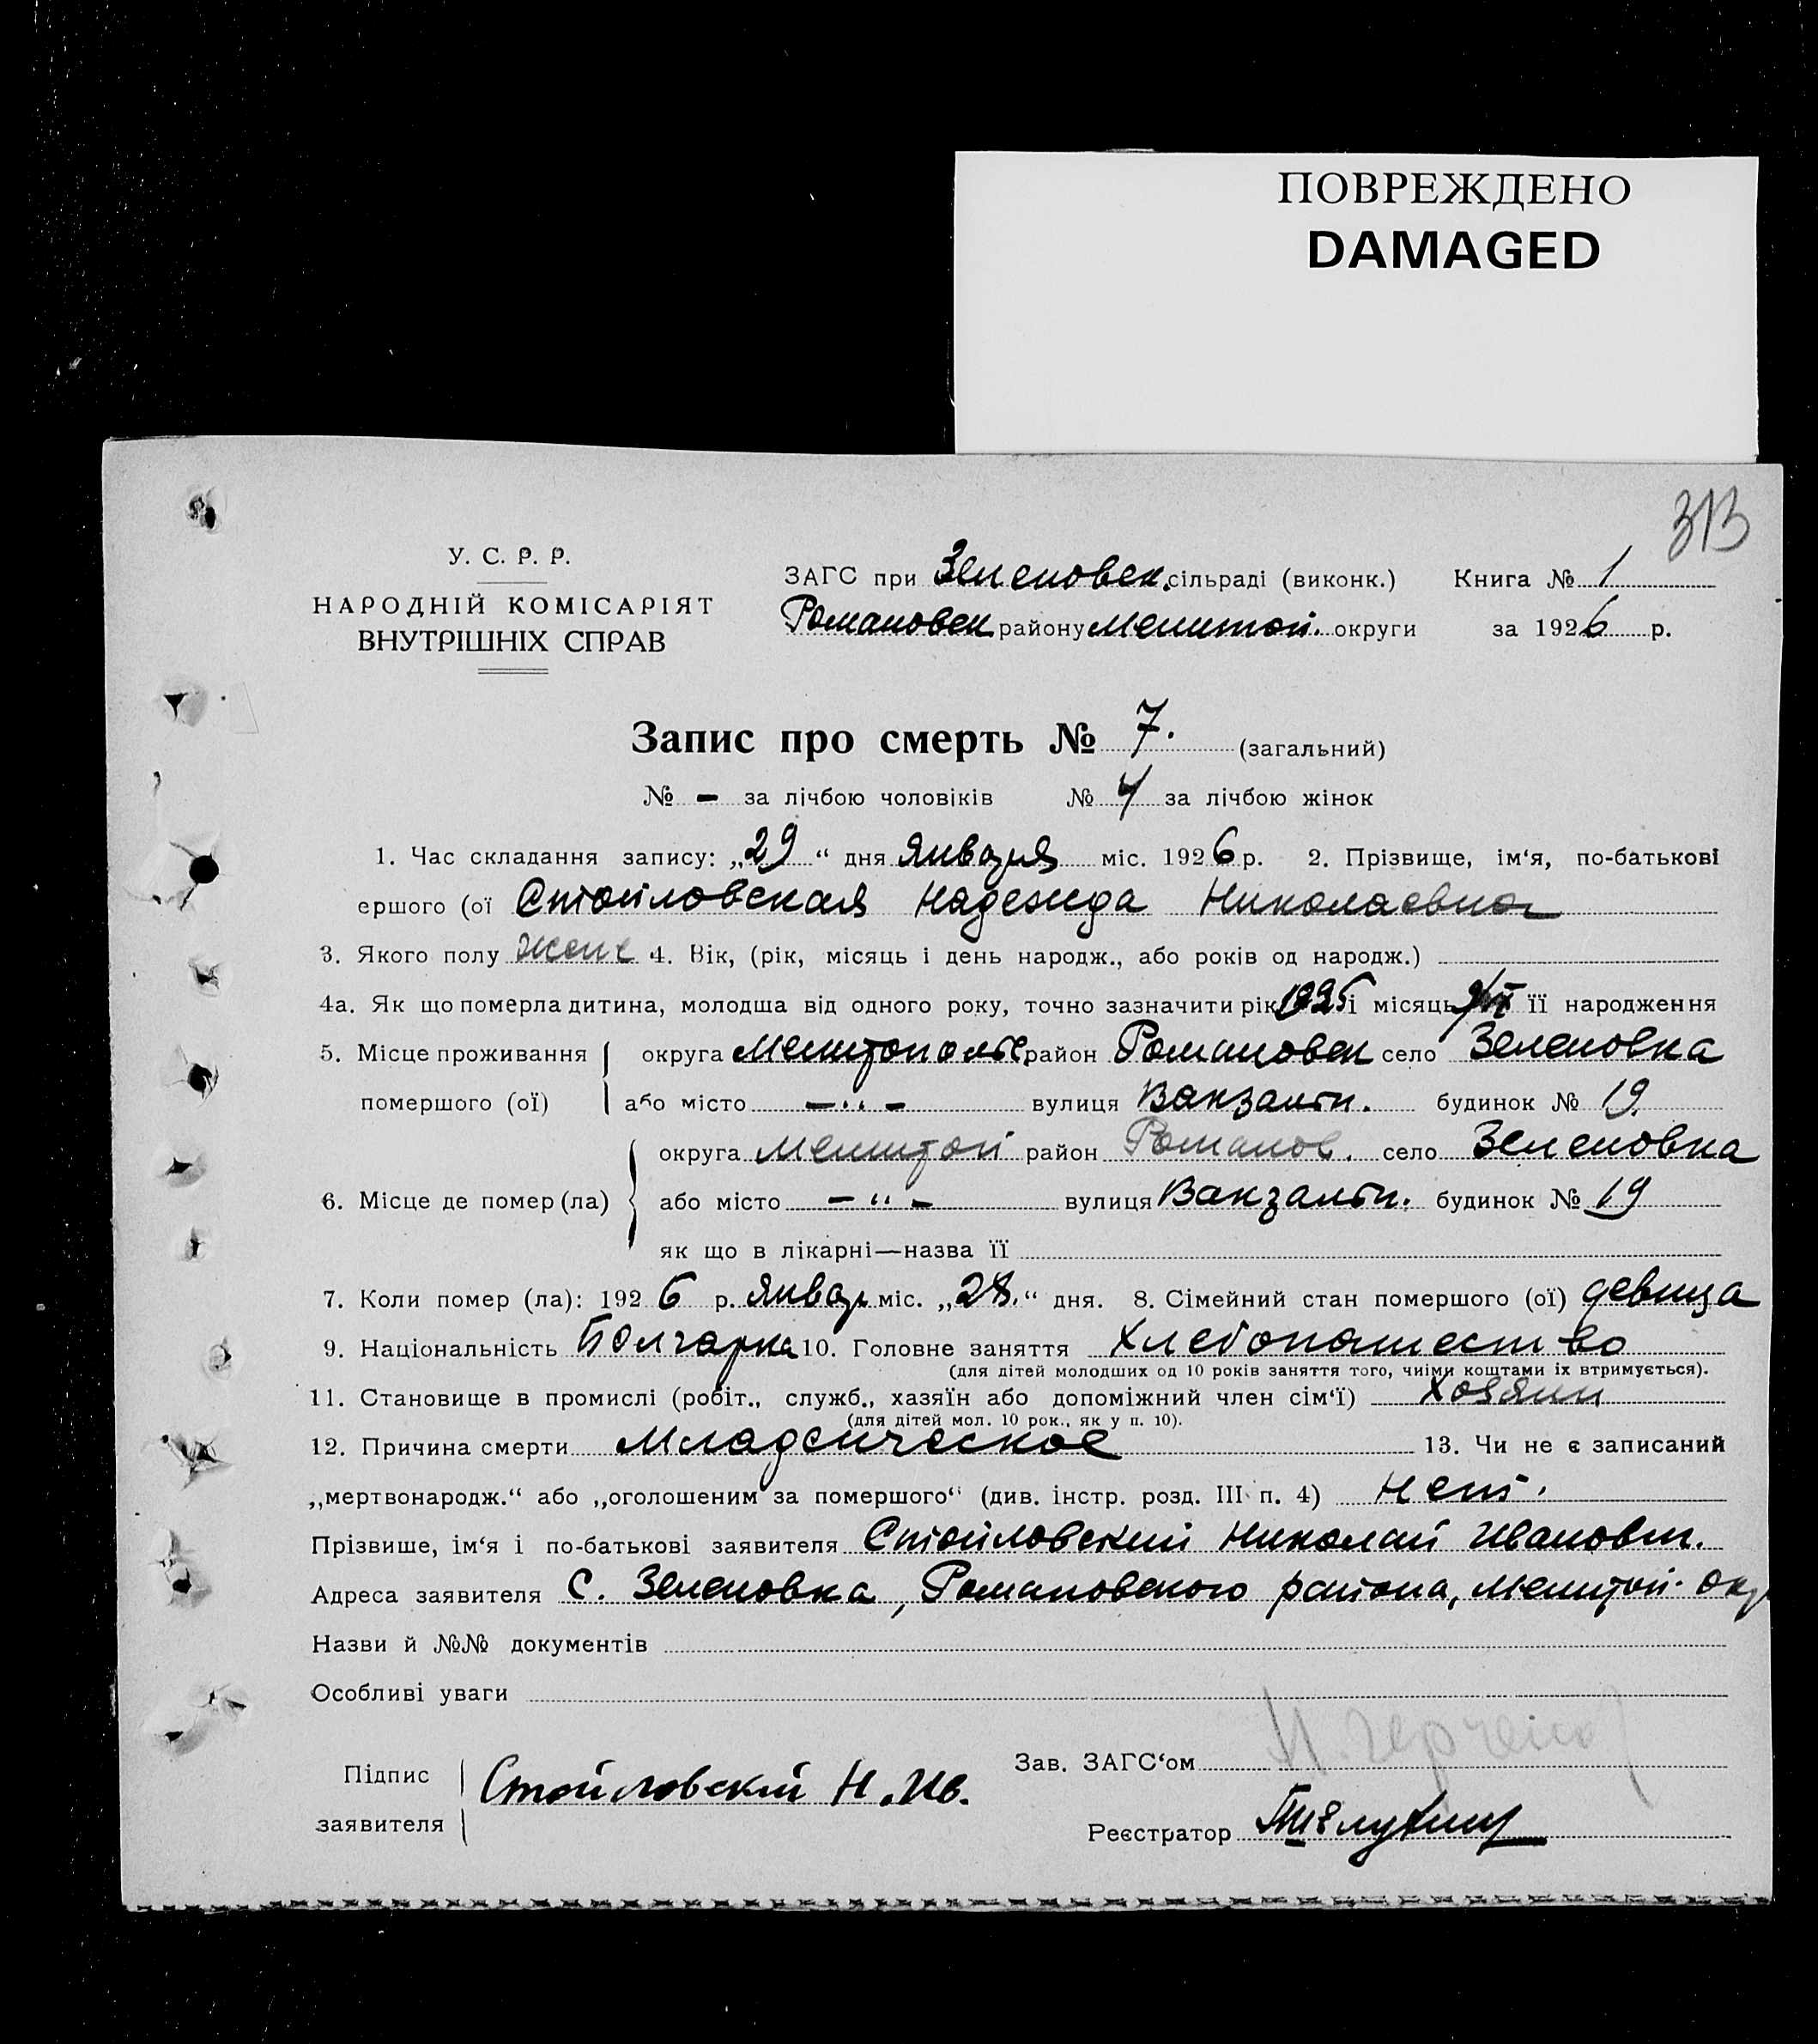 ПОВРЕЖДЕНО
DAMAGED
313
У. С. Р. Р.
НАРОДНІЙ КОМІСАРІЯТ
ВНУТРІШНІХ СПРАВ
ЗАГС при Зеленовск. сільраді (виконк.) Книга № 1
Романовск району Мелитоп. округи за 1926 р.
Запис про смерть № 7. (загальний)
№ - за лічбою чоловіків № 4 за лічбою жінок
1. Час складання запису: „29“ дня Января міс. 1926 р. 2. Прізвище, ім‘я, по-батькові
ершого (ої Стойловская Надежда Николаевна
3. Якого полу женс 4. Вік, (рік, місяць і день народж., або років од народж.)
4а. Як що померла дитина, молодша від одного року, точно зазначити рік 1925 і місяць її народження
5. Місце проживання помершого (ої) округа Мелитопольс район Романовск село Зеленовка
або місто —„— вулиця Вакзальн. будинок № 19.
6. Місце де помер (ла) округа Мелитоп район Романов. село Зеленовка
або місто —„— вулиця Вакзальн. будинок № 19
як що в лікарні—назва її
7. Коли помер (ла): 1926 р. Январ міс. „28.“ дня. 8. Сімейний стан помершого (ої) девица
9. Національність Болгарка 10. Головне заняття Хлебопашество
(для дітей молодших од 10 років заняття того, чиїми коштами їх втримується).
11. Становище в промислі (робіт., служб., хазяїн або допоміжний член сім‘ї) Хозяин
(для дітей мол. 10 рок., як у п. 10).
12. Причина смерти Младенческое 13. Чи не є записаний
„мертвонародж.“ або „оголошеним за помершого“ (див. інстр. розд. III п. 4) Нет.
Прізвише, ім‘я і по-батькові заявителя Стойловский Николай Иванович.
Адреса заявителя С. Зеленовка, Романовского района, Мелитоп. окр
Назви й №№ документів
Особливі уваги
Підпис заявителя Стойловский Н. Ив.
Зав. ЗАГС‘ом
Реєстратор